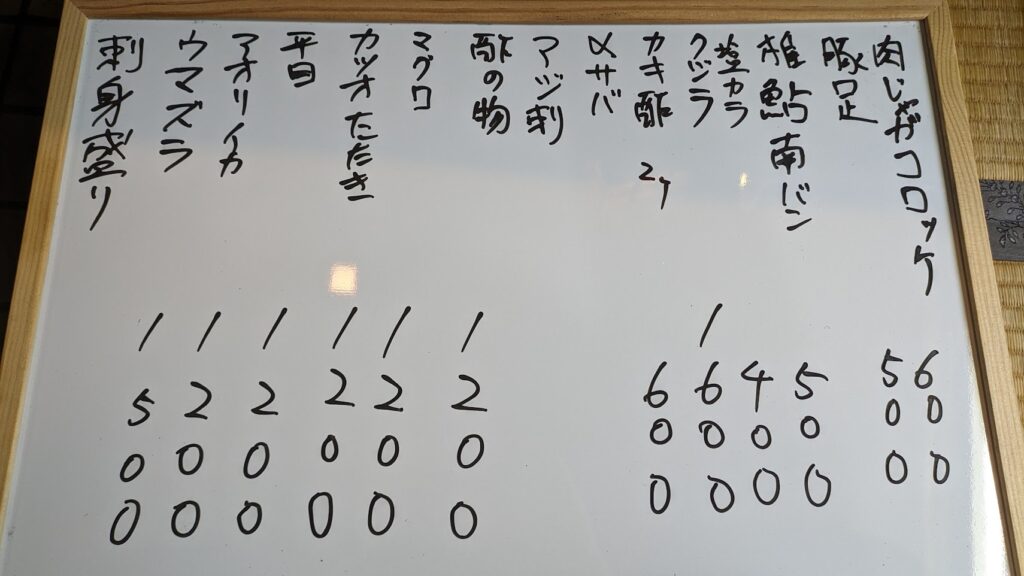 肉じゃがコロッケ 600
豚足 500
稚鮎南バン 500
塩カラ 400
クジラ 1600
カキ酢 2ケ 600
〆サバ
アジ刺
酢の物
マグロ 1200
カツオたたき 1200
平目 1200
アオリイカ 1200
ウマズラ 1200
刺身盛り 1500